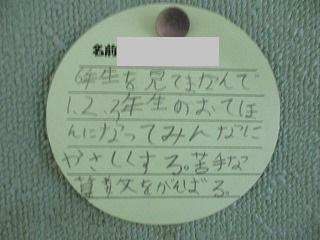 名前
6年生を見てまなんで
1.2.3年生のおてほ
んになってみんなに
やさしくする。苦手な
算数をがんばる。